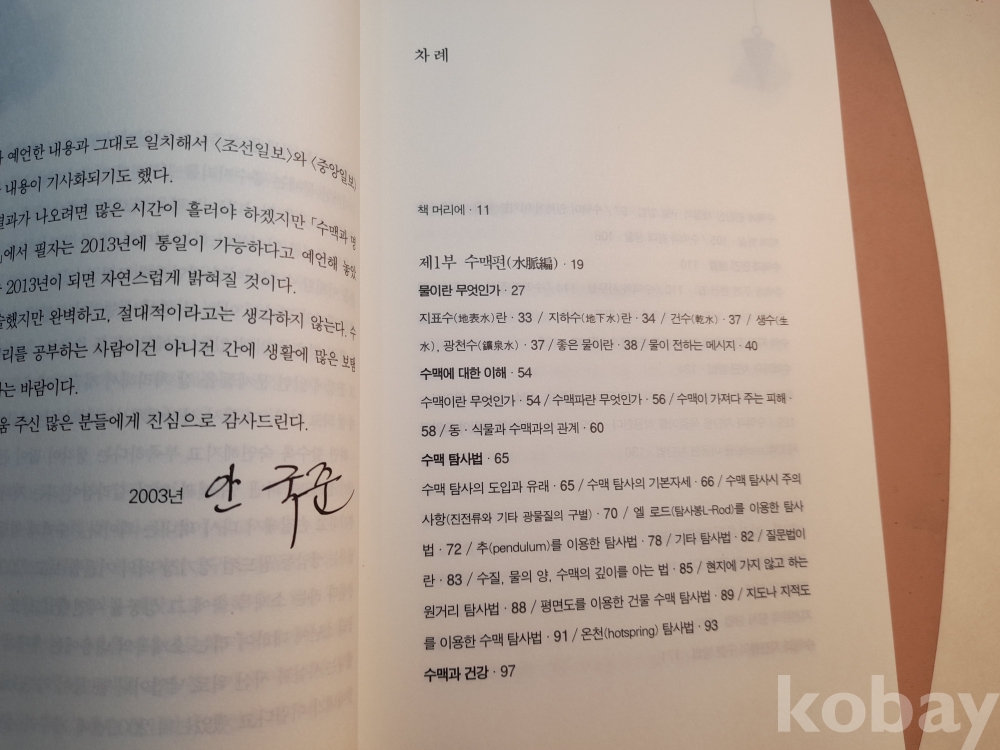 예언한 내용과 그대로 일치해서 〈조선일보〉와 〈중앙일보〉
내용이 기사화되기도 했다.
결과가 나오려면 많은 시간이 흘러야 하겠지만 「수맥과 명
에서 필자는 2013년에 통일이 가능하다고 예언해 놓았
2013년이 되면 자연스럽게 밝혀질 것이다.
술했지만 완벽하고, 절대적이라고는 생각하지 않는다. 수
리를 공부하는 사람이건 아니건 간에 생활에 많은 보탬
라는 바람이다.
움 주신 많은 분들에게 진심으로 감사드린다.
2003년 안국준
차례
책 머리에 · 11
제1부 수맥편(水脈編) · 19
물이란 무엇인가 · 27
지표수(地表水)란 · 33 / 지하수(地下水)란 · 34 / 건수(乾水) · 37 / 생수(生
水), 광천수(鑛泉水) · 37 / 좋은 물이란 · 38 / 물이 전하는 메시지 · 40
수맥에 대한 이해 · 54
수맥이란 무엇인가 · 54 / 수맥파란 무엇인가 · 56 / 수맥이 가져다 주는 피해 ·
58 / 동 · 식물과 수맥과의 관계 · 60
수맥 탐사법 · 65
수맥 탐사의 도입과 유래 · 65 / 수맥 탐사의 기본자세 · 66 / 수맥 탐사시 주의
사항(진전류와 기타 광물질의 구별) · 70 / 엘 로드(탐사봉L-Rod)를 이용한 탐사
법 · 72 / 추(pendulum)를 이용한 탐사법 · 78 / 기타 탐사법 · 82 / 질문법이
란 · 83 / 수질, 물의 양, 수맥의 깊이를 아는 법 · 85 / 현지에 가지 않고 하는
원거리 탐사법 · 88 / 평면도를 이용한 건물 수맥 탐사법 · 89 / 지도나 지적도
를 이용한 수맥 탐사법 · 91 / 온천(hotspring) 탐사법 · 93
수맥과 건강 · 97
kobay